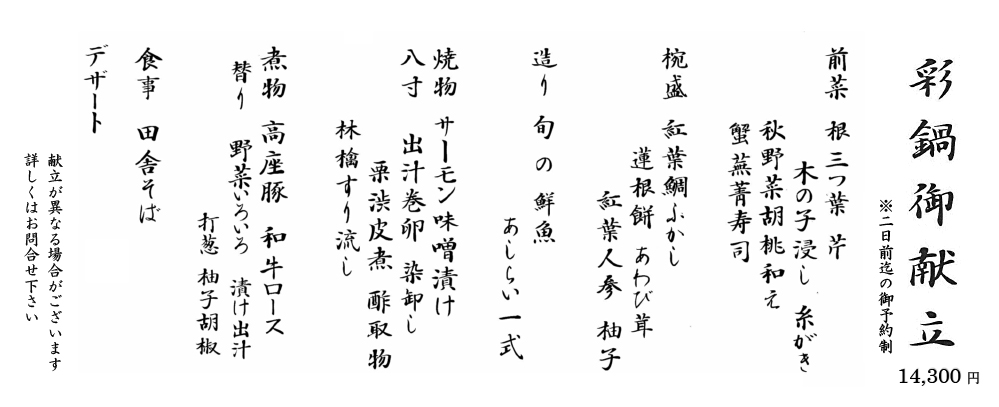 彩鍋御献立
※二日前迄の御予約制
14,300 円
前菜 根三つ葉 芹
木の子浸し 糸がき
秋野菜胡桃和え
蟹蕪菁寿司
椀盛 紅葉鯛ふかし
蓮根餅 あわび茸
紅葉人参 柚子
造り 旬の鮮魚
あしらい一式
焼物 サーモン味噌漬け
八寸 出汁巻卵 染卸し
栗渋皮煮 酢取物
林檎すり流し
煮物 高座豚 和牛ロース
替り 野菜いろいろ 漬け出汁
打葱 柚子胡椒
食事 田舎そば
デザート
献立が異なる場合がございます
詳しくはお問合せ下さい